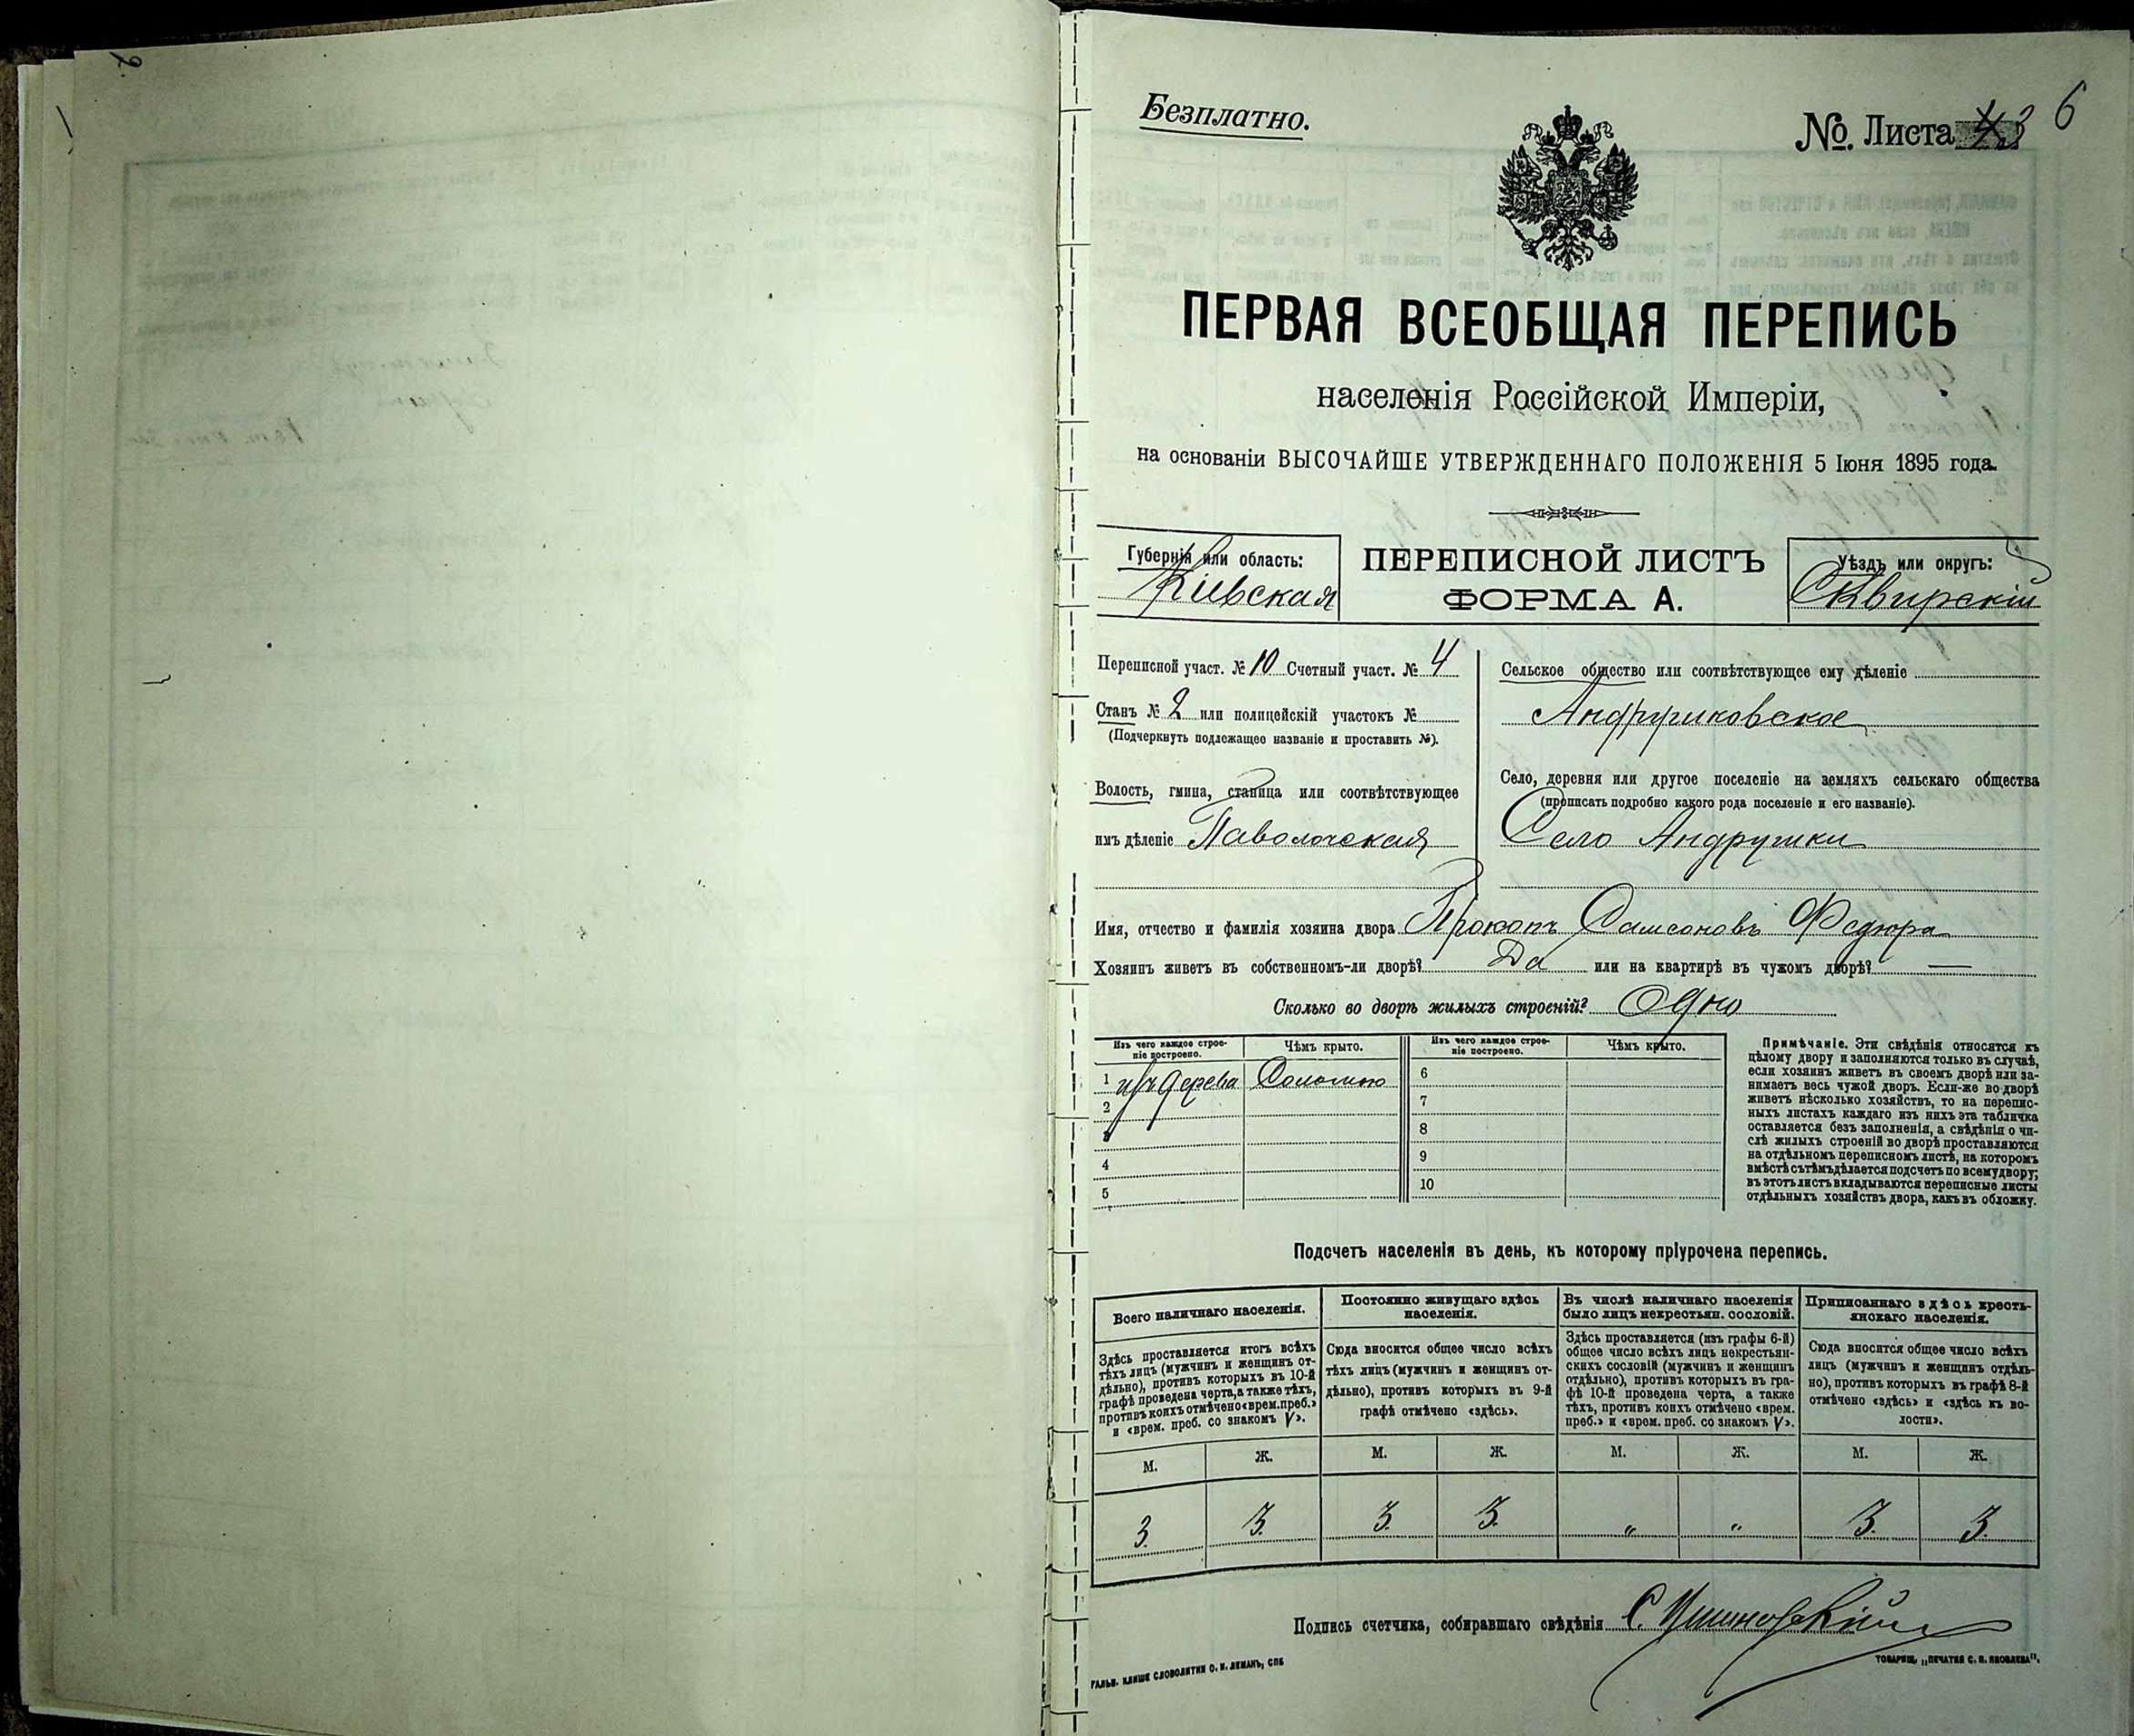 Безплатно.
№. Листа 3 6
ПЕРВАЯ ВСЕОБЩАЯ ПЕРЕПИСЬ
населенія Россійской Имперіи,
на основаніи ВЫСОЧАЙШЕ УТВЕРЖДЕННАГО ПОЛОЖЕНІЯ 5 Іюня 1895 года.
Губернія или область:
Кіевская
ПЕРЕПИСНОЙ ЛИСТЪ
ФОРМА А.
Уѣздъ или округъ:
Сквирскій
Переписной участ. № 10 Счетный участ. № 4
Станъ № 2 или полицейскій участокъ №
(Подчеркнуть подлежащее названіе и проставить №).
Волость, гмина, станица или соотвѣтствующее
имъ дѣленіе Паволочская
Сельское общество или соотвѣтствующее ему дѣленіе
Андрушковское
Село, деревня или другое поселеніе на земляхъ сельскаго общества
(прописать подробно какого рода поселеніе и его названіе).
Село Андрушки
Имя, отчество и фамилія хозяина двора Прокопъ Самсоновъ Федюра
Хозяинъ живетъ въ собственномъ-ли дворѣ? Да или на квартирѣ въ чужомъ дворѣ? —
Сколько во дворѣ жилыхъ строеній? Одно
Изъ чего каждое строе-
ніе построено.
Чѣмъ крыто.
Изъ чего каждое строе-
ніе построено.
Чѣмъ крыто.
1 изъ дерева Соломою
2
3
4
5
6
7
8
9
10
Примѣчаніе. Эти свѣдѣнія относятся къ
цѣлому двору и заполняются только въ случаѣ,
если хозяинъ живетъ въ своемъ дворѣ или за-
нимаетъ весь чужой дворъ. Если-же во дворѣ
живетъ нѣсколько хозяйствъ, то на перепис-
ныхъ листахъ каждаго изъ нихъ эта табличка
оставляется безъ заполненія, а свѣдѣнія о чи-
слѣ жилыхъ строеній во дворѣ проставляются
на отдѣльномъ переписномъ листѣ, на которомъ
вмѣстѣ съ тѣмъ дѣлается подсчетъ по всему двору;
въ этотъ листъ вкладываются переписные листы
отдѣльныхъ хозяйствъ двора, какъ въ обложку.
Подсчетъ населенія въ день, къ которому пріурочена перепись.
Всего наличнаго населенія.
Здѣсь проставляется итогъ всѣхъ
тѣхъ лицъ (мужчинъ и женщинъ от-
дѣльно), противъ которыхъ въ 10-й
графѣ проведена черта, а также тѣхъ,
противъ коихъ отмѣчено «врем. преб.»
и «врем. преб. со знакомъ V».
Постоянно живущаго здѣсь
населенія.
Сюда вносится общее число всѣхъ
тѣхъ лицъ (мужчинъ и женщинъ от-
дѣльно), противъ которыхъ въ 9-й
графѣ отмѣчено «здѣсь».
Въ числѣ наличнаго населенія
было лицъ некрестьян. сословій.
Здѣсь проставляется (изъ графы 6-й)
общее число всѣхъ лицъ некрестьян-
скихъ сословій (мужчинъ и женщинъ
отдѣльно), противъ которыхъ въ гра-
фѣ 10-й проведена черта, а также
тѣхъ, противъ коихъ отмѣчено «врем.
преб.» и «врем. преб. со знакомъ V».
Приписаннаго здѣсь кресть-
янскаго населенія.
Сюда вносится общее число всѣхъ
лицъ (мужчинъ и женщинъ отдѣль-
но), противъ которыхъ въ графѣ 8-й
отмѣчено «здѣсь» и «здѣсь къ во-
лости».
М. Ж. М. Ж. М. Ж. М. Ж.
3. 3. 3. 3. " " 3. 3.
Подпись счетчика, собиравшаго свѣдѣнія С.
ГАЛЬВ. КЛИШЕ СЛОВОЛИТНИ О. И. ЛЕМАНЪ, СПБ
ТОВАРИЩ. „ПЕЧАТНЯ С. П. ЯКОВЛЕВА".